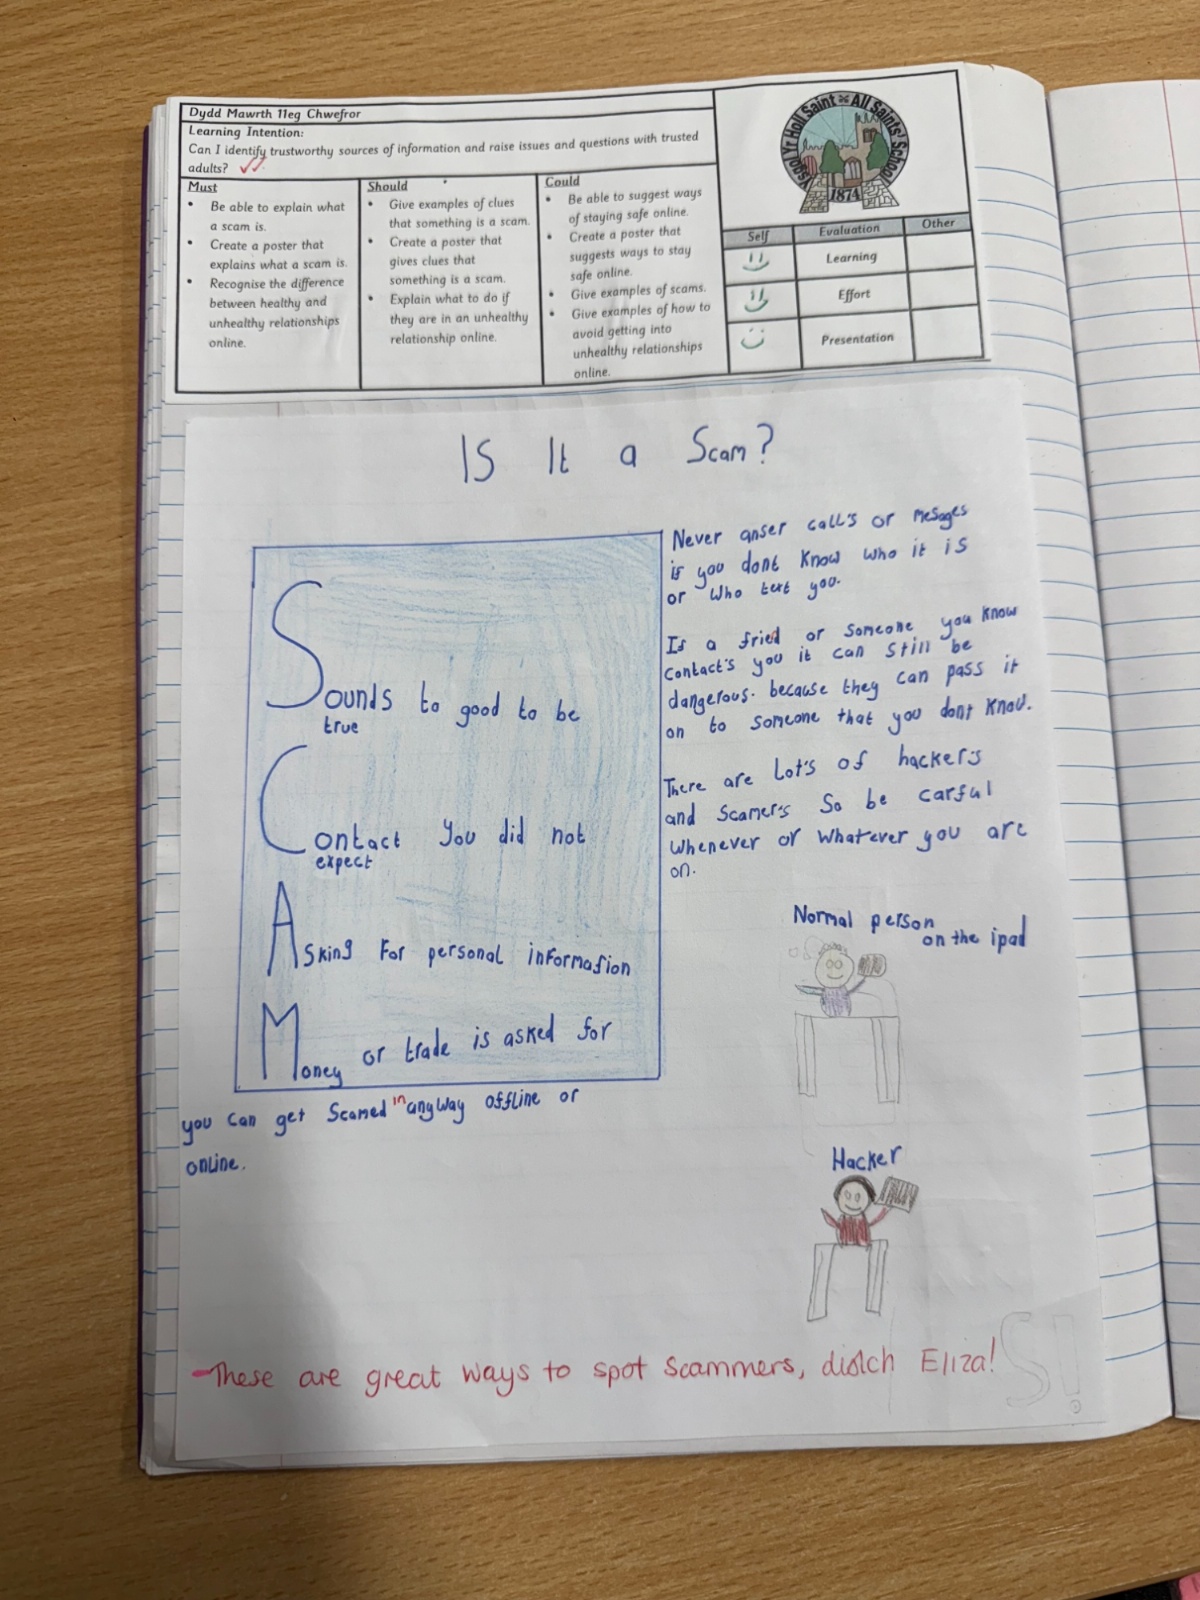 Dydd Mawrth 11eg Chwefror
Learning Intention:
Can I identify trustworthy sources of information and raise issues and questions with trusted
adults?
Must
• Be able to explain what
a scam is.
• Create a poster that
explains what a scam is.
• Recognise the difference
between healthy and
unhealthy relationships
online.
Should
• Give examples of clues
that something is a scam.
• Create a poster that
gives clues that
something is a scam.
• Explain what to do if
they are in an unhealthy
relationship online.
Could
• Be able to suggest ways
of staying safe online.
• Create a poster that
suggests ways to stay
safe online.
• Give examples of scams.
• Give examples of how to
avoid getting into
unhealthy relationships
online.
Ysgol Yr Holl Saint All Saints' School
1874
Self Evaluation Other
Learning
Effort
Presentation
IS It a Scam?
Sounds to good to be
true
Contact You did not
expect
Asking For personal information
Money or trade is asked for
you can get Scamed in anyway offline or
online.
Never anser call's or mesages
if you dont know who it is
or who text you.
If a fried or someone you know
contact's you it can still be
dangerous. because they can pass it
on to someone that you dont know.
There are Lot's of hacker's
and Scamer's So be carful
whenever or whatever you are
on.
Normal person
on the ipad
Hacker
These are great ways to spot scammers, diolch Eliza!
S!